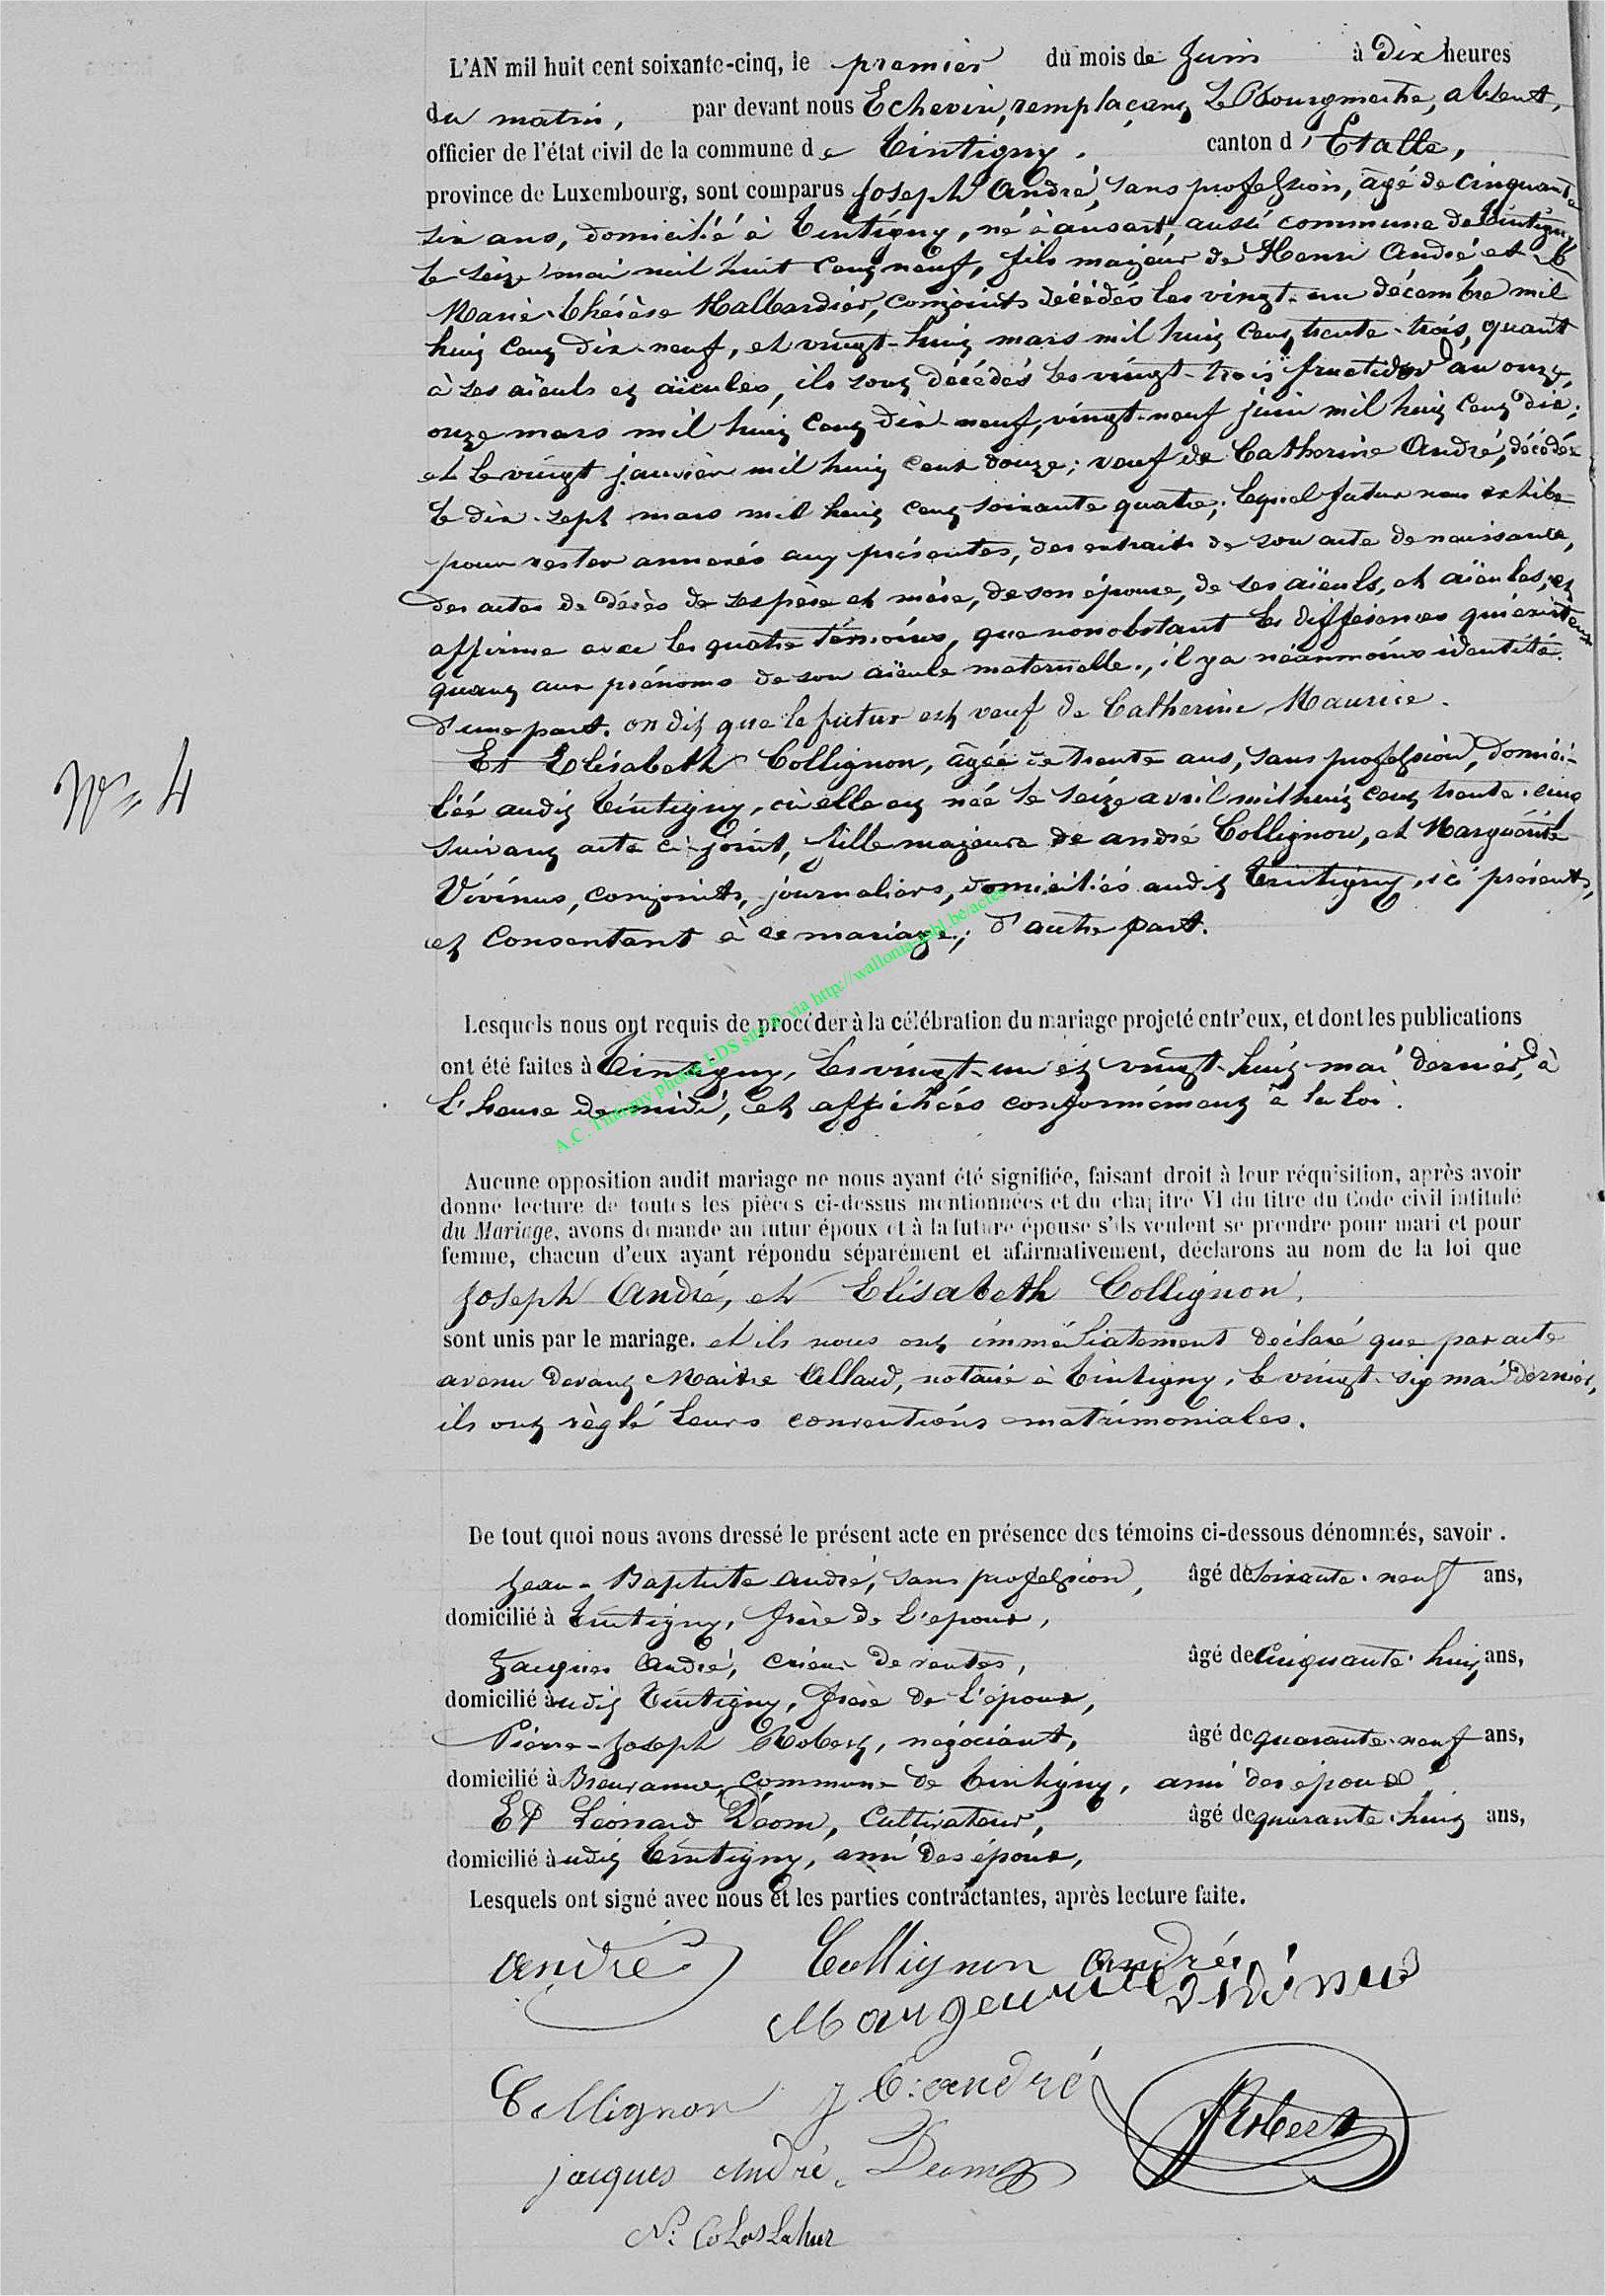 L'AN mil huit cent soixante-cinq, le premier du mois de Juin à Dix heures
du matin, par devant nous Echevin, remplaçant Le Bourgmestre, absent,
officier de l'état civil de la commune de Tintigny, canton d'Etalle,
province de Luxembourg, sont comparus Joseph André, sans profession, âgé de cinquante
six ans, domicilié à Tintigny, né à ansart, aussi commune de Tintigny
le seize mai mil huit cent neuf, fils majeur de Henri André et de
Marie-thérèse Halbardier, conjoints décédés les vingt-un décembre mil
huit cent dix-neuf, et vingt-huit mars mil huit cent trente-trois, quant
à ses aïeuls et aïeules, ils sont décédés les vingt-trois fructidor an onze,
onze mars mil huit cent dix-neuf, vingt-neuf juin mil huit cent dix;
et le vingt janvier mil huit cent douze; veuf de Catherine André, décédée
le dix-sept mars mil huit cent soixante quatre; lequel futur nous exhibe
pour rester annexés aux présentes, des extraits de son acte de naissance,
des actes de décès de ses père et mère, de son épouse, de ses aïeuls, et aïeules, et
affirme avec les quatre témoins, que nonobstant les différences qui existent
quant aux prénoms de son aïeule maternelle, il y a néanmoins identité.
d'une part. on dit que le futur est veuf de Catherine Maurice.
Et Elisabeth Collignon, âgée de trente ans, sans profession, domici-
liée audit Tintigny, où elle est née le seize avril mil huit cent trente-cinq
suivant acte ci-joint, fille majeure de andré Collignon, et Marguerite
Vivinus, conjoints, journaliers, domiciliés audit Tintigny, ici présents,
et Consentant à ce mariage; d'autre part.
N° 4
Lesquels nous ont requis de procéder à la célébration du mariage projeté entr'eux, et dont les publications
ont été faites à Tintigny, les vingt-un et vingt-huit mai dernier, à
l'heure de midi, et affichées conformément à la loi.
A.C. Tintigny photos LDS site © via http://wallonia-asbl.be/actes
Aucune opposition audit mariage ne nous ayant été signifiée, faisant droit à leur réquisition, après avoir
donné lecture de toutes les pièces ci-dessus mentionnées et du chapitre VI du titre du Code civil intitulé
du Mariage, avons demandé au futur époux et à la future épouse s'ils veulent se prendre pour mari et pour
femme, chacun d'eux ayant répondu séparément et affirmativement, déclarons au nom de la loi que
Joseph André, et Elisabeth Collignon,
sont unis par le mariage. et ils nous ont immédiatement déclaré que par acte
avenu devant Maître Allard, notaire à Tintigny, le vingt-six mai dernier,
ils ont règlé leurs conventions matrimoniales.
De tout quoi nous avons dressé le présent acte en présence des témoins ci-dessous dénommés, savoir.
Jean-Baptiste André, sans profession, âgé de soixante-neuf ans,
domicilié à Tintigny, frère de l'époux,
Jacques André, crieur de ventes, âgé de Cinquante-huit ans,
domicilié audit Tintigny, frère de l'époux,
Pierre-Joseph Robert, négociant, âgé de quarante-neuf ans,
domicilié à Breuvanne, Commune de Tintigny, ami des époux
Et Léonard Déom, Cultivateur, âgé de quarante-huit ans,
domicilié audit Tintigny, ami des époux,
Lesquels ont signé avec nous et les parties contractantes, après lecture faite.
andré Collignon André
Margeurite vivinus
Collignon J B: andré
Robert
jacques andré Deom